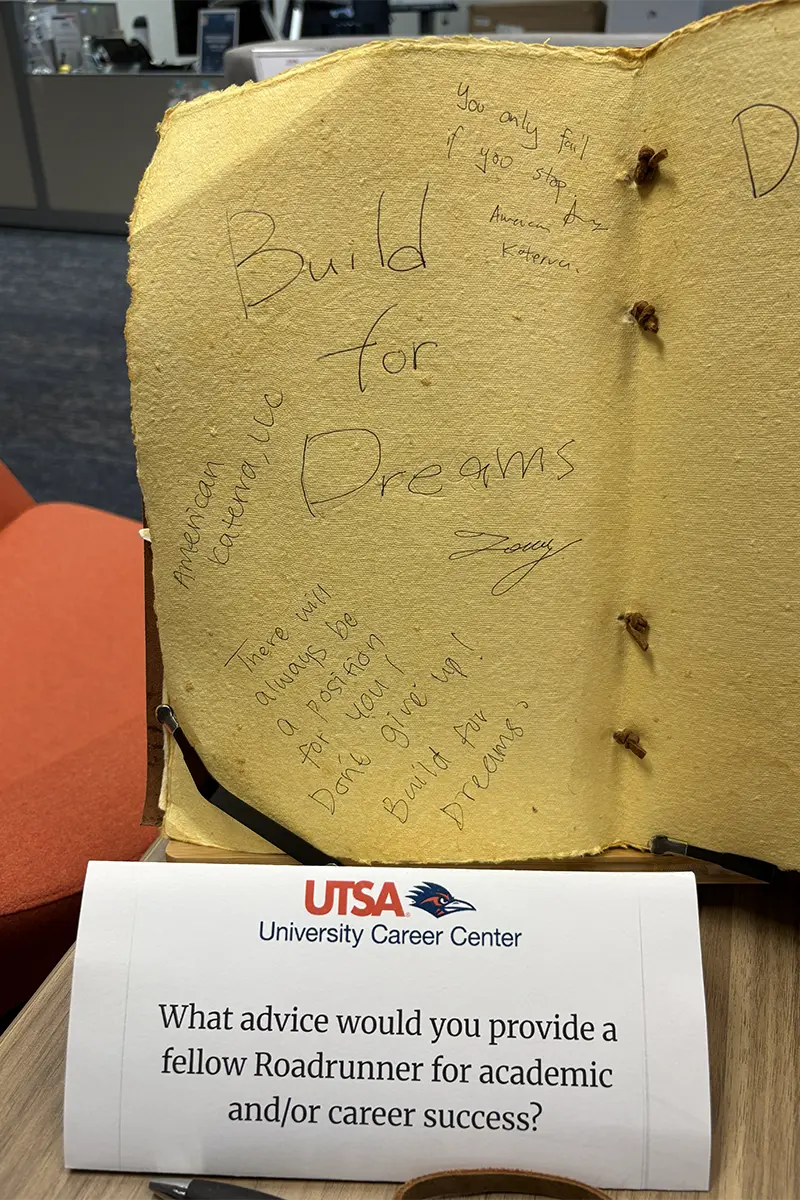 You only fail
if you stop.
American
Katerra.
Build
for
Dreams
American
Katerra, LLC
There will
always be
a position
for you!
Don't give up!
Build for
Dreams
D
UTSA
University Career Center
What advice would you provide a
fellow Roadrunner for academic
and/or career success?